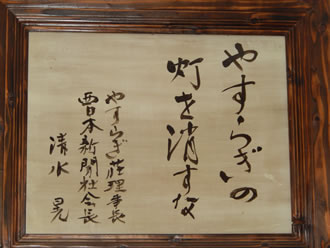 やすらぎの
灯を消すな
やすらぎ荘理事長
西日本新聞社会長
清水 晃